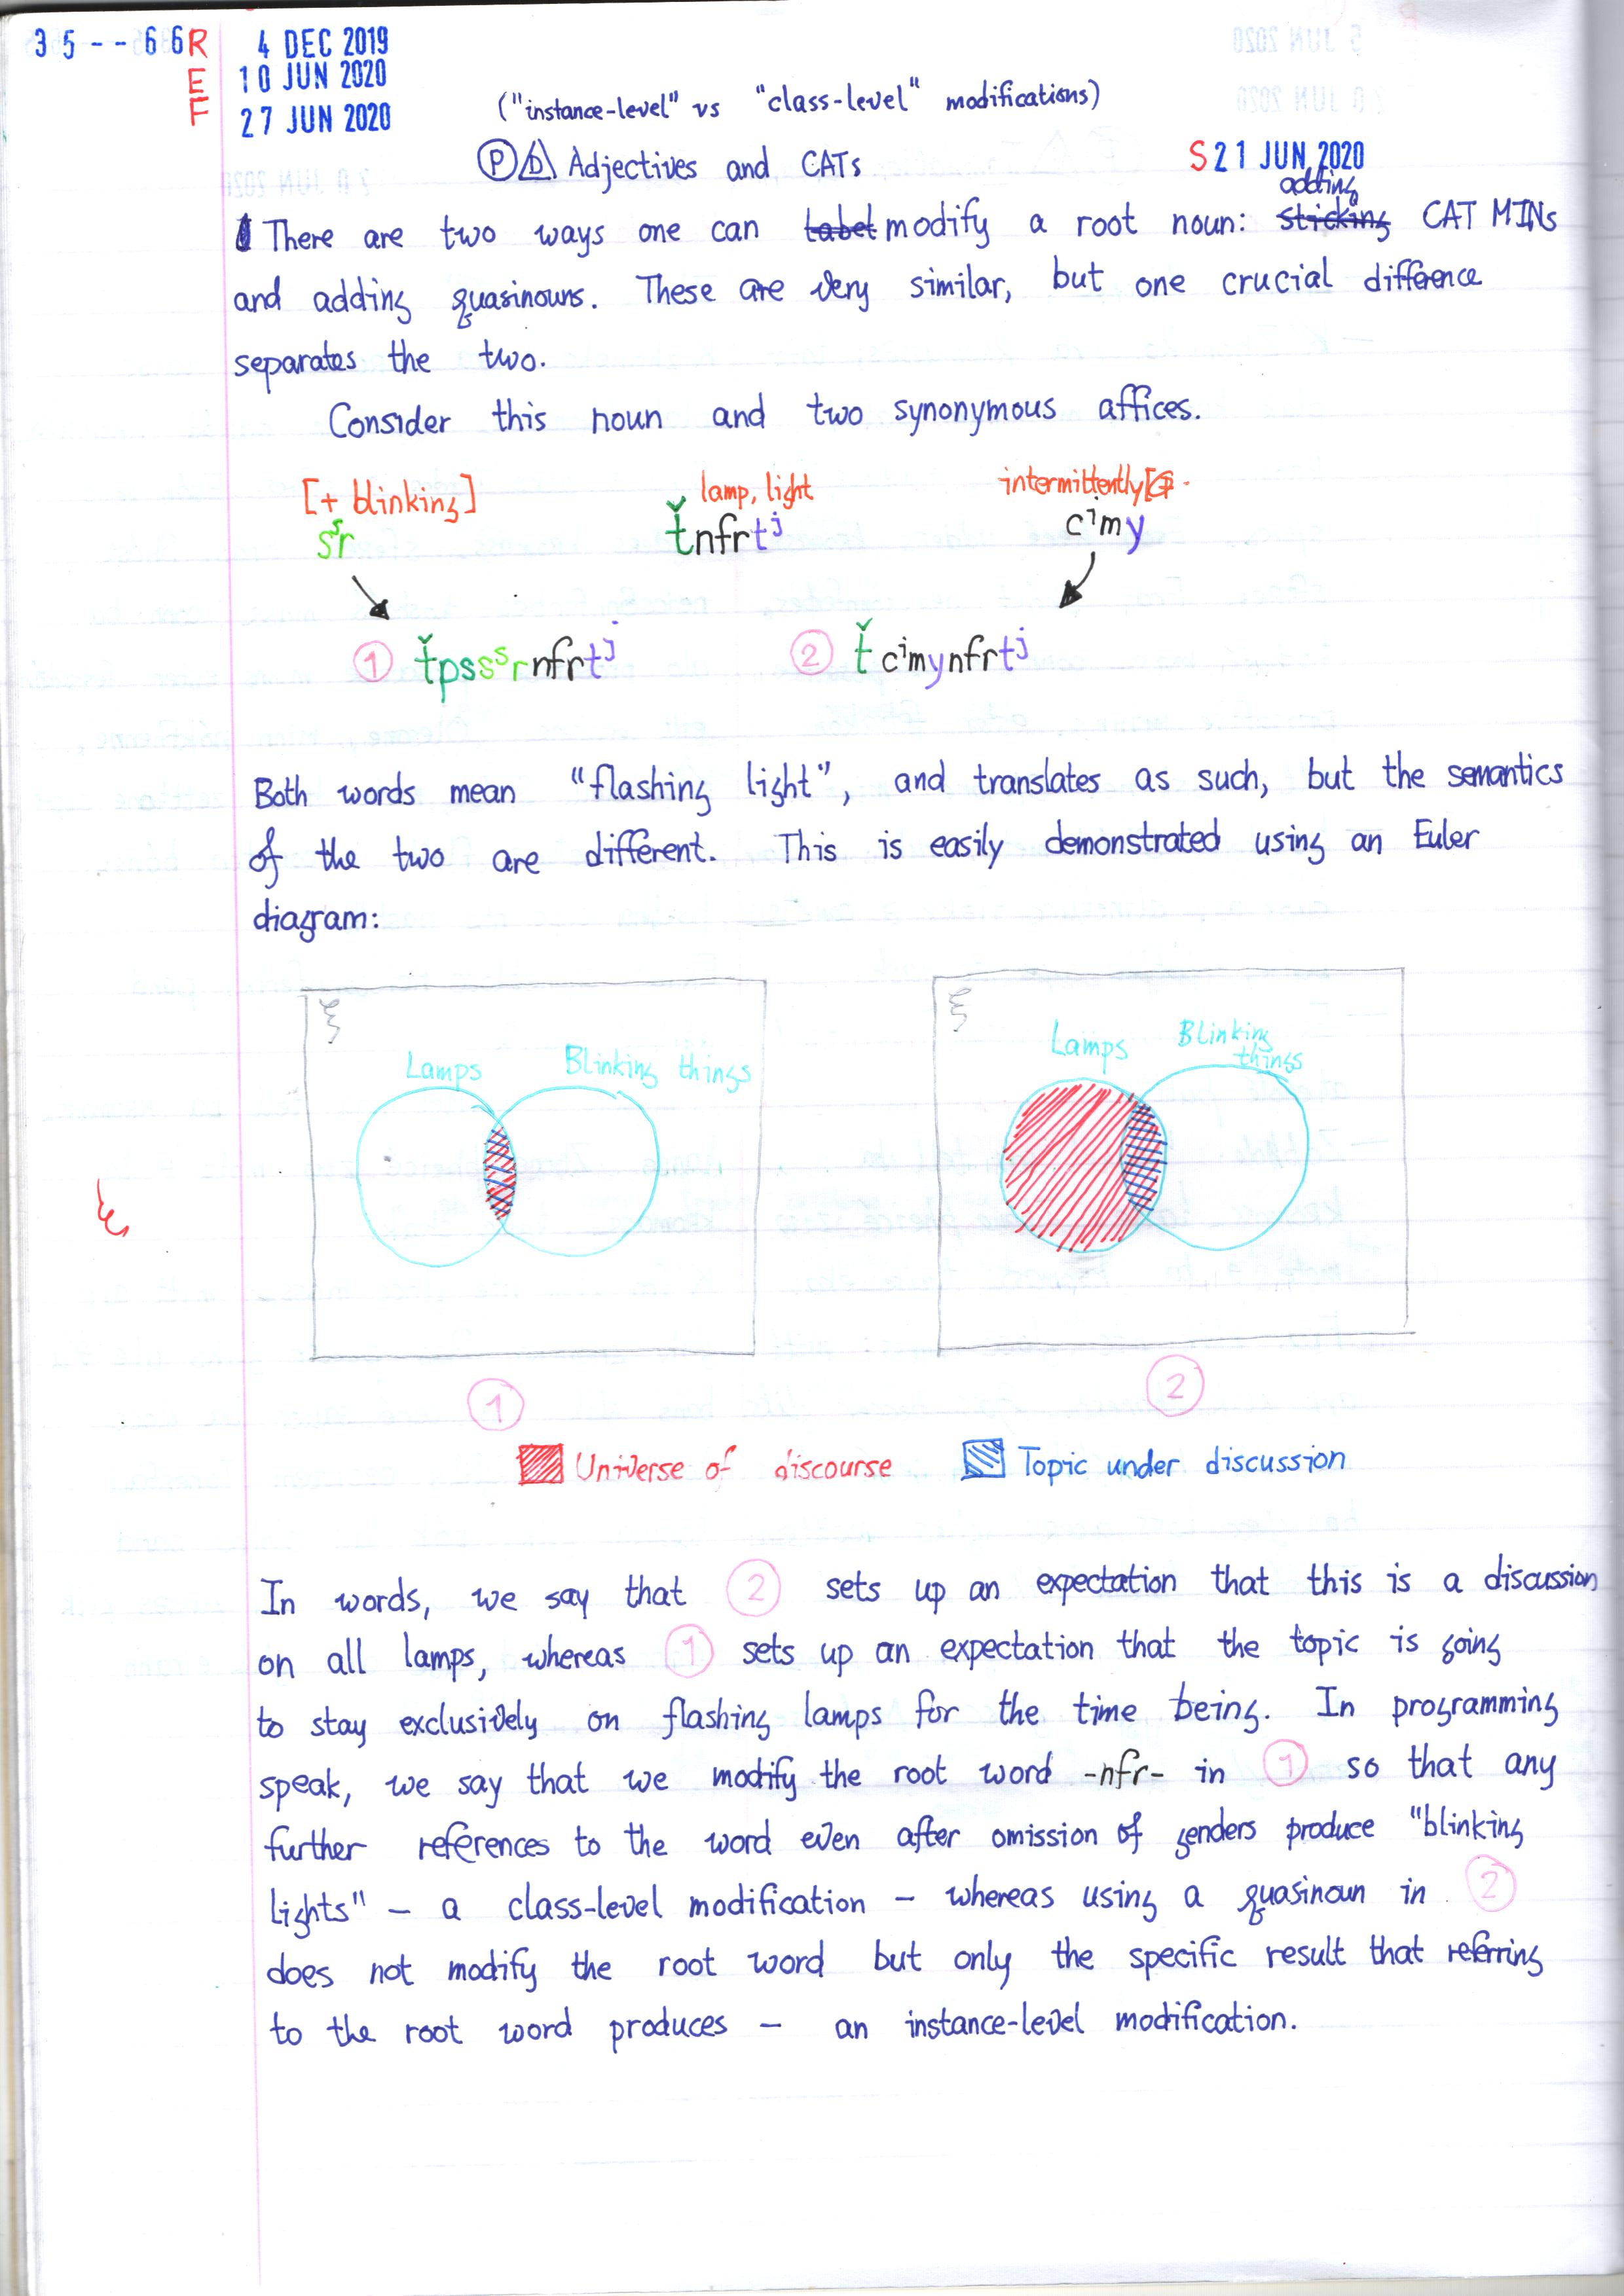 35--66 R 4 DEC 2019
E 10 JUN 2020
F 27 JUN 2020
("instance-level" vs "class-level" modifications)
Ⓟ D Adjectives and CATs
S 21 JUN 2020
adding
There are two ways one can label modify a root noun: sticking CAT MINs
and adding quasinouns. These are very similar, but one crucial difference
separates the two.
Consider this noun and two synonymous affices.
[+ blinking] lamp, light intermittently
sˢr ť̌nfrtʲ cⁱmy
① ť̌pssˢrnfrtʲ ② ť̌cⁱmynfrtʲ
Both words mean "flashing light", and translates as such, but the semantics
of the two are different. This is easily demonstrated using an Euler
diagram:
ξ ξ
Lamps Blinking things
Lamps Blinking
things
① ②
Universe of discourse Topic under discussion
In words, we say that ② sets up an expectation that this is a discussion
on all lamps, whereas ① sets up an expectation that the topic is going
to stay exclusively on flashing lamps for the time being. In programming
speak, we say that we modify the root word -nfr- in ① so that any
further references to the word even after omission of genders produce "blinking
lights" – a class-level modification – whereas using a quasinoun in ②
does not modify the root word but only the specific result that referring
to the root word produces – an instance-level modification.